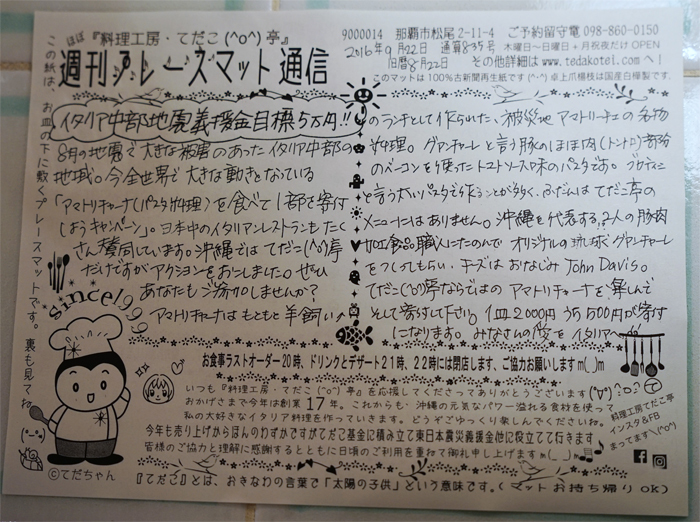 ほぼ『料理工房・てだこ(^o^)亭』
週刊プレースマット通信
9000014 那覇市松尾2-11-4 ご予約留守電 098-860-0150
2016年9月22日 通算835号 木曜日〜日曜日+月祝夜だけ OPEN
旧暦8月22日 その他詳細は www.tedakotei.com へ!
このマットは100%古新聞再生紙です(^-^)卓上爪楊枝は国産白樺製です.
この紙は、お皿の下に敷くプレースマットです。裏も見てね。
イタリア中部地震義援金目標5万円!!
8月の地震で大きな被害のあったイタリア中部の
地域。今全世界で大きな動きとなっている
「アマトリチャーナ(パスタ料理)を食べて1部を寄付
しようキャンペーン」。日本中のイタリアンレストランもたく
さん賛同しています。沖縄では てだこ(^o^)亭
だけですがアクションをおこしました。ぜひ
あなたもご参加しませんか?
アマトリチャーナはもともと羊飼い
のランチとして作られたい、被災地アマトリーチェの名物
料理。グアンチャーレと言う豚のほほ肉(トントロ)部分
のベーコンを使ったトマトソース味のパスタです。ブカティーニ
と言う太いパスタで作ることが多く、ふだんはてだこ亭の
メニューにはありません。沖縄を代表する!?2人の豚肉
加工食品職人にたのんで オリジナルの琉球グアンチャーレ
をつくってもらい、チーズはおなじみ John Davis。
てだこ(^o^)亭ならではの アマトリチャーナを楽しんで
そして寄付して下さい。1皿2000円 うち500円が寄付
になります。みなさんの愛を イタリアへ
since1999
©てだちゃん
お食事ラストオーダー20時、ドリンクとデザート21時、22時には閉店します、ご協力お願いしますm(_)m
いつも『料理工房・てだこ(^o^)亭』を応援してくださってありがとうございます(^∀^)
おかげさまで今年は創業17年。これからも、沖縄の元気なパワー溢れる食材を使って
私の大好きなイタリア料理を作っていきます。どうぞごゆっくり楽しんでくださいね。
今年も売り上げからほんのわずかですがてだこ基金に積み立て東日本震災義援金他に役立てて行きます
皆様のご協力と理解に感謝するとともに日頃のご利用を重ねて御礼申し上げますm(_)m
料理工房てだこ亭
インスタ&FB
まってます\(^o^)
『てだこ』とは、おきなわの言葉で「太陽の子供」という意味です。(マットお持ち帰りok)